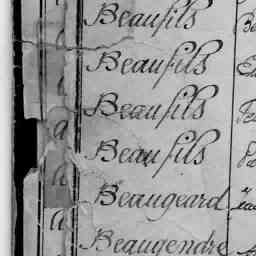 Beaufils
Beaufils
Beaufils
Beaufils
Beaugeard
Beaugendre